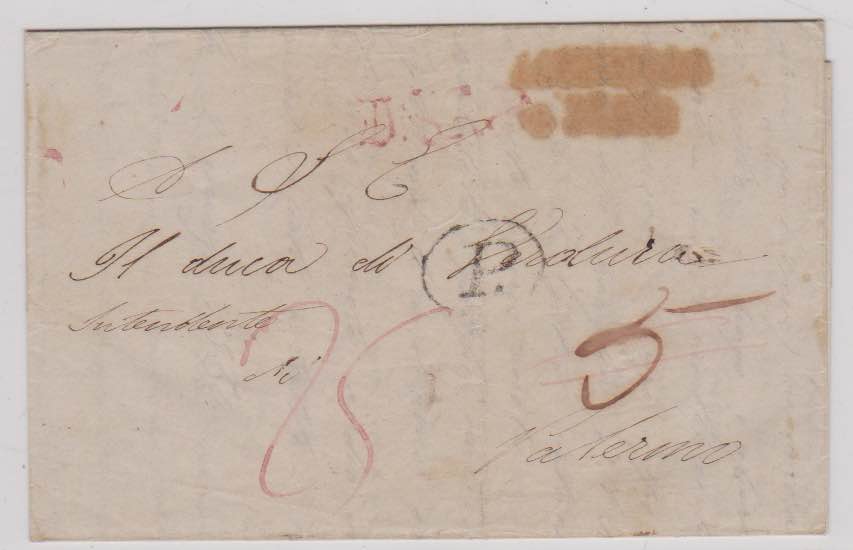 A S E
Il duca di Verdura
P.
Intendente
di
25
5
Palermo